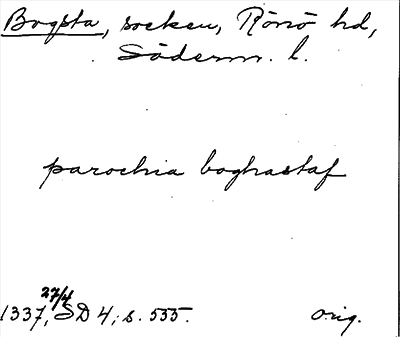 Bogsta, socken, Rönö hd,
Söderm. l.
parochia boghastaf
27/4
1337, SD 4, s. 555. orig.